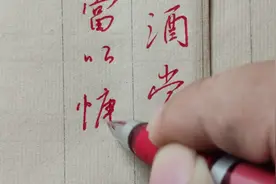 酒當
當以慷